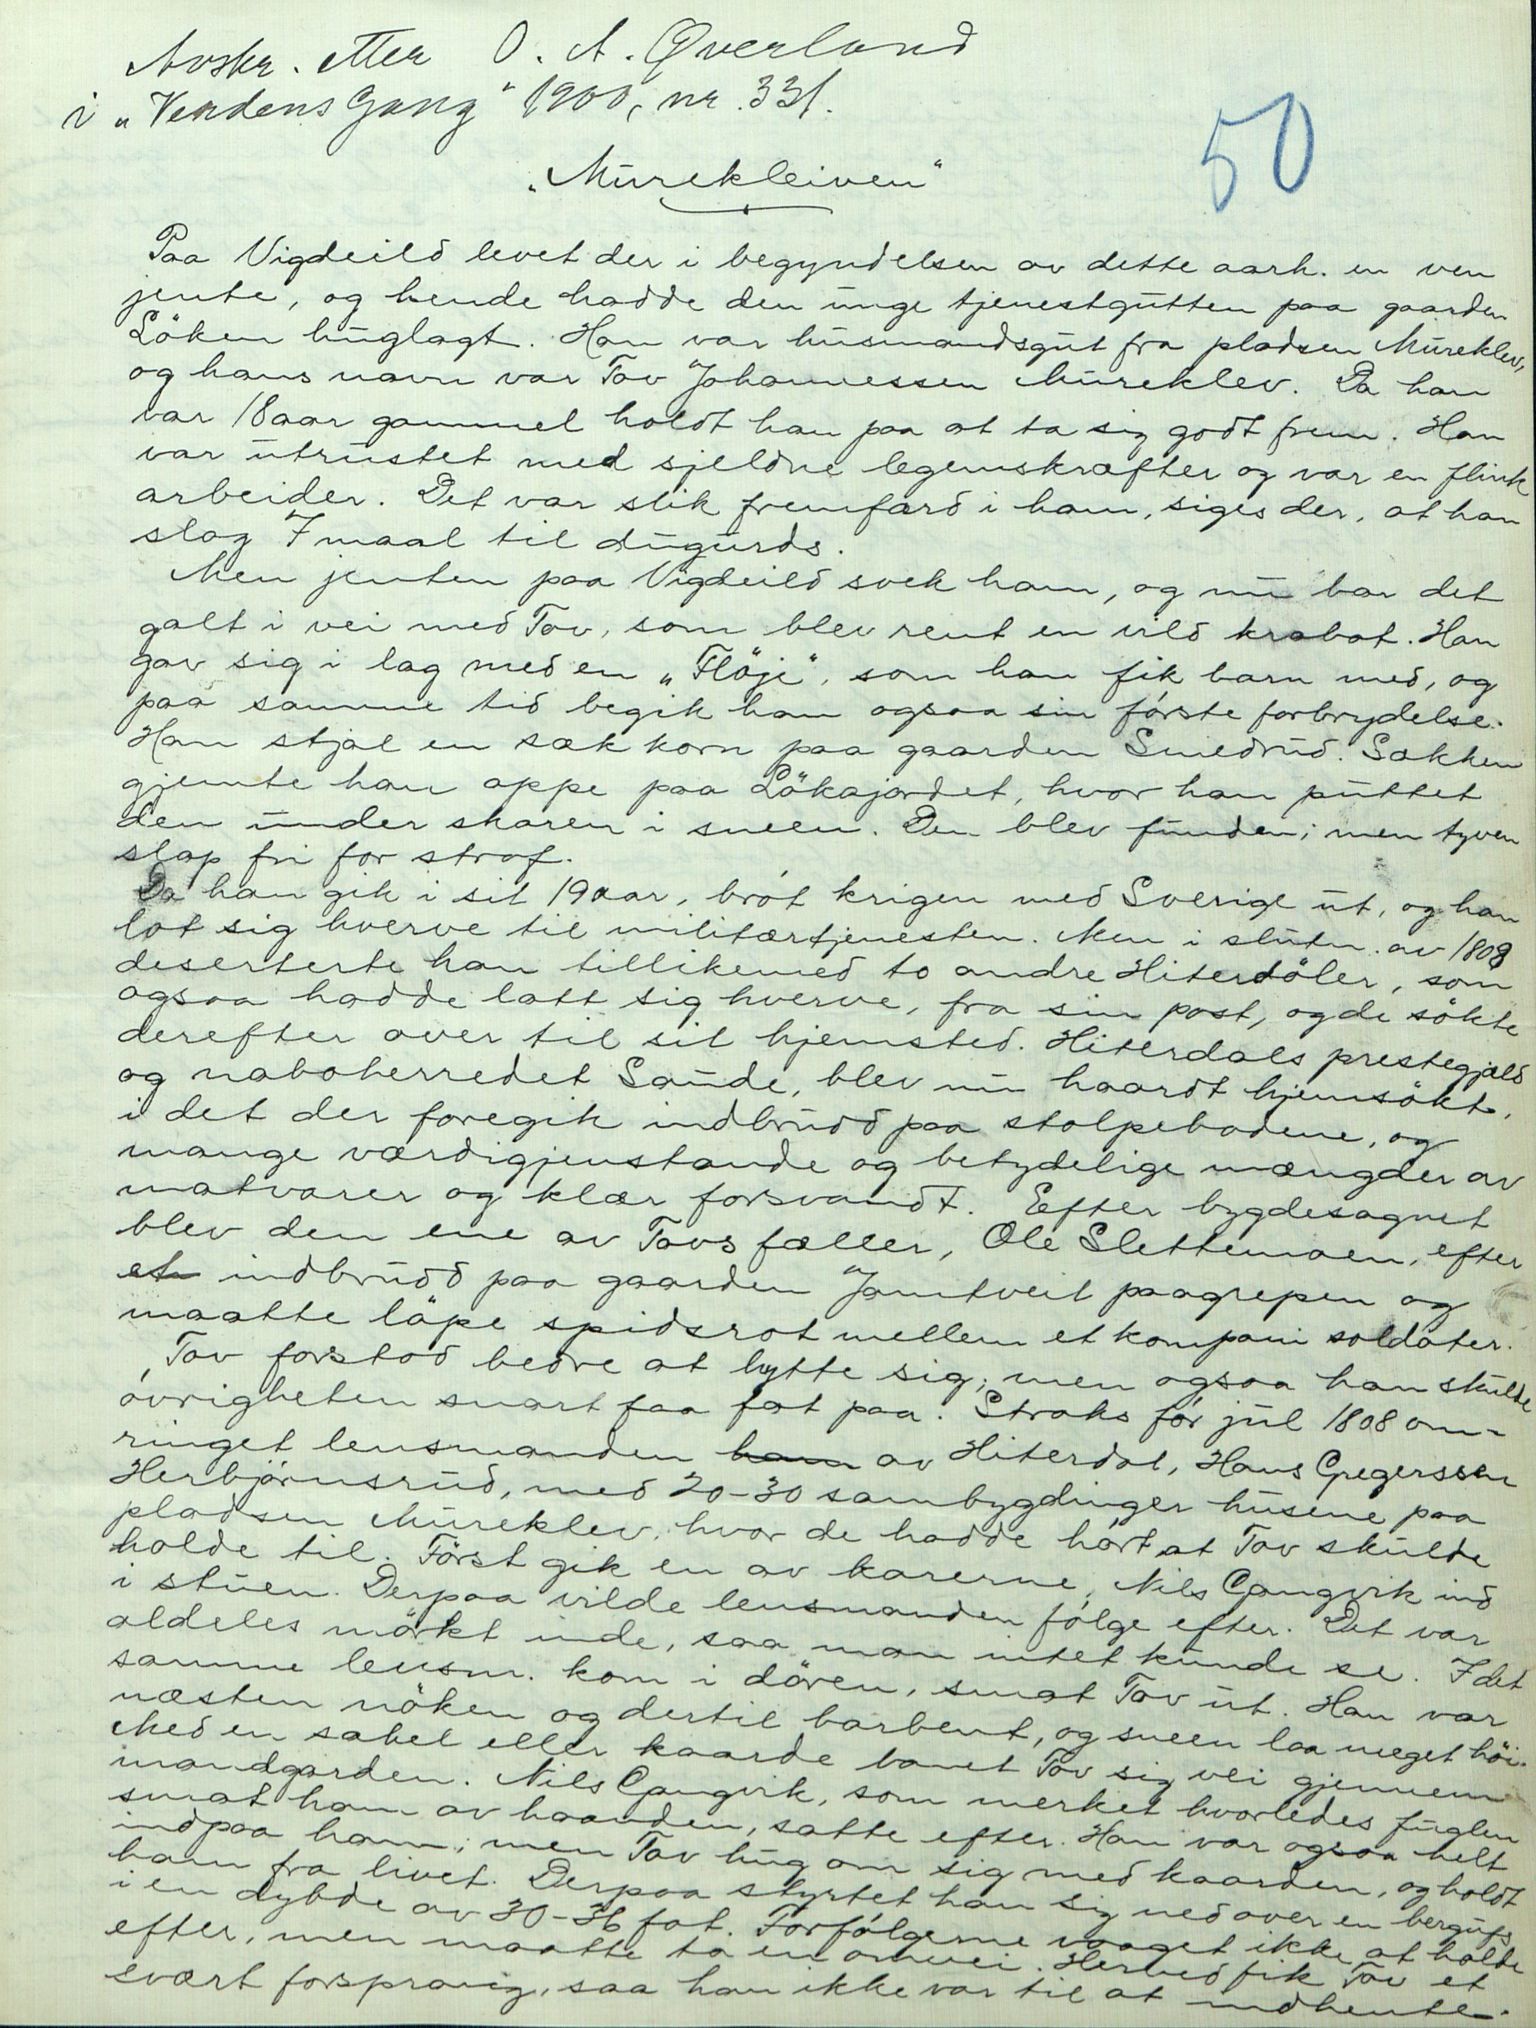 Avskr. etter O. A. Øverland
i „Verdens Gang" 1900, nr. 331.
50
„Murekleiven"
Paa Vigdeild levet der i begyndelsen av dette aarh. en ven
jente, og hende hadde den unge tjenestgutten paa gaarden
Löken huglagt. Han var husmandsgut fra pladsen Mureklev,
og hans navn var Tov Johannessen Mureklev. Da han
var 18 aar gammel holdt han paa at ta sig godt frem. Han
var utrustet med sjeldne legemskræfter og var en flink
arbeider. Det var slik fremfærd i ham, siges der, at han
slog 7 maal til dugurds.
Men jenten paa Vigdeild svek ham, og nu bar det
galt i vei med Tov, som blev rent en vild krabat. Han
gav sig i lag med en „Flöje", som han fik barn med, og
paa samme tid begik han ogsaa sin förste forbrydelse.
Han stjal en sæk korn paa gaarden Smedrud. Sækken
gjemte han oppe paa Lökajordet, hvor han puttet
den under skaren i sneen. Den blev funden; men tyven
slap fri for straf.
Da han gik i sit 19 aar, bröt krigen med Sverige ut, og han
lot sig hverve til militærtjenesten. Men i slutn. av 1808
deserterte han tillikemed to andre Hiterdöler, som
ogsaa hadde latt sig hverve, fra sin post, og de sökte
derefter over til sit hjemsted. Hiterdals prestegjæld
og naboherredet Saude, blev nu haardt hjemsökt,
i det der foregik indbrudd paa stolpebodene, og
mange værdigjenstande og betydelige mængder av
matvarer og klær forsvandt. Efter bygdesagnet
blev den ene av Tovs fæller, Ole Slettemoen, efter
et indbrudd paa gaarden Jamtveit paagrepen og
maatte löpe spidsrot mellem et kompani soldater.
Tov forstod bedre at bytte sig; men ogsaa han skulde
övrigheten snart faa fat paa. Straks för jul 1808 om-
ringet lensmanden ham av Hiterdal, Hans Gregerssen
Herbjörnsrud, med 20-30 sambygdinger husene paa
pladsen Mureklev, hvor de hadde hört at Tov skulde
holde til. Först gik en av karerne, Nils Gangvik ind
i stuen. Derpaa vilde lensmanden fölge efter. Det var
aldeles mörkt inde, saa man intet kunde se. I det
samme lensm. kom i dören, smat Tov ut. Han var
næsten nöken og dertil barbent, og sneen laa meget höi.
Med en sabel eller kaarde banet Tov sig vei gjennem
mandgarden. Nils Gangvik, som merket hvorledes fuglen
smat ham av haanden, satte efter. Han var ogsaa helt
indpaa ham; men Tov hug om sig med kaarden, og holdt
ham fra livet. Derpaa styrtet han sig ned over en bergufs
i en dybde av 30-36 fot. Forfölgerne vaaget ikke at holde
efter, men maatte ta en omvei. Herved fik Tov et
svært forsprang, saa han ikke var til at indhente.